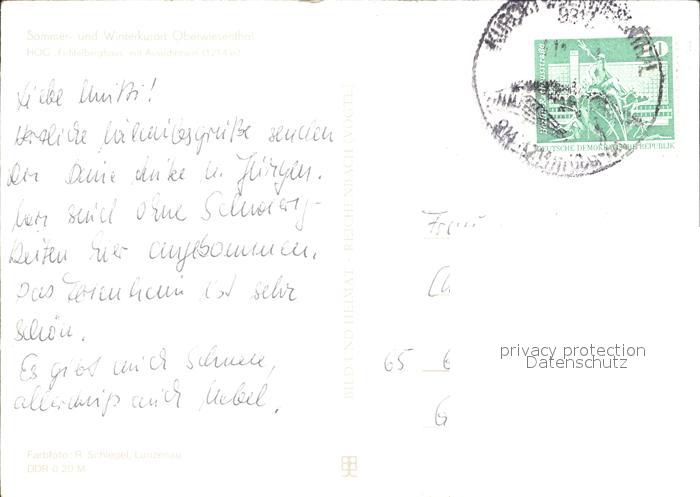 Sommer- und Winterkurort Oberwiesenthal
HOG „Fichtelberghaus“ mit Aussichtsturm (1214 m)
Liebe Mutti!
Herzliche Urlaubsgrüße senden
Dir Deine Anke u. Jürgen.
Wir sind ohne Schwierig-
keiten hier angekommen.
Das Ferienheim ist sehr
schön.
Es gibt auch Schnee,
allerdings auch Nebel.
Farbfoto: R. Schlegel, Lunzenau
DDR 0,20 M
BILD UND HEIMAT · REICHENBACH (VOGTL)
10
DEUTSCHE DEMOKRATISCHE REPUBLIK
KURORT OBERWIESENTHAL
Frau
65
G
privacy protection
Datenschutz